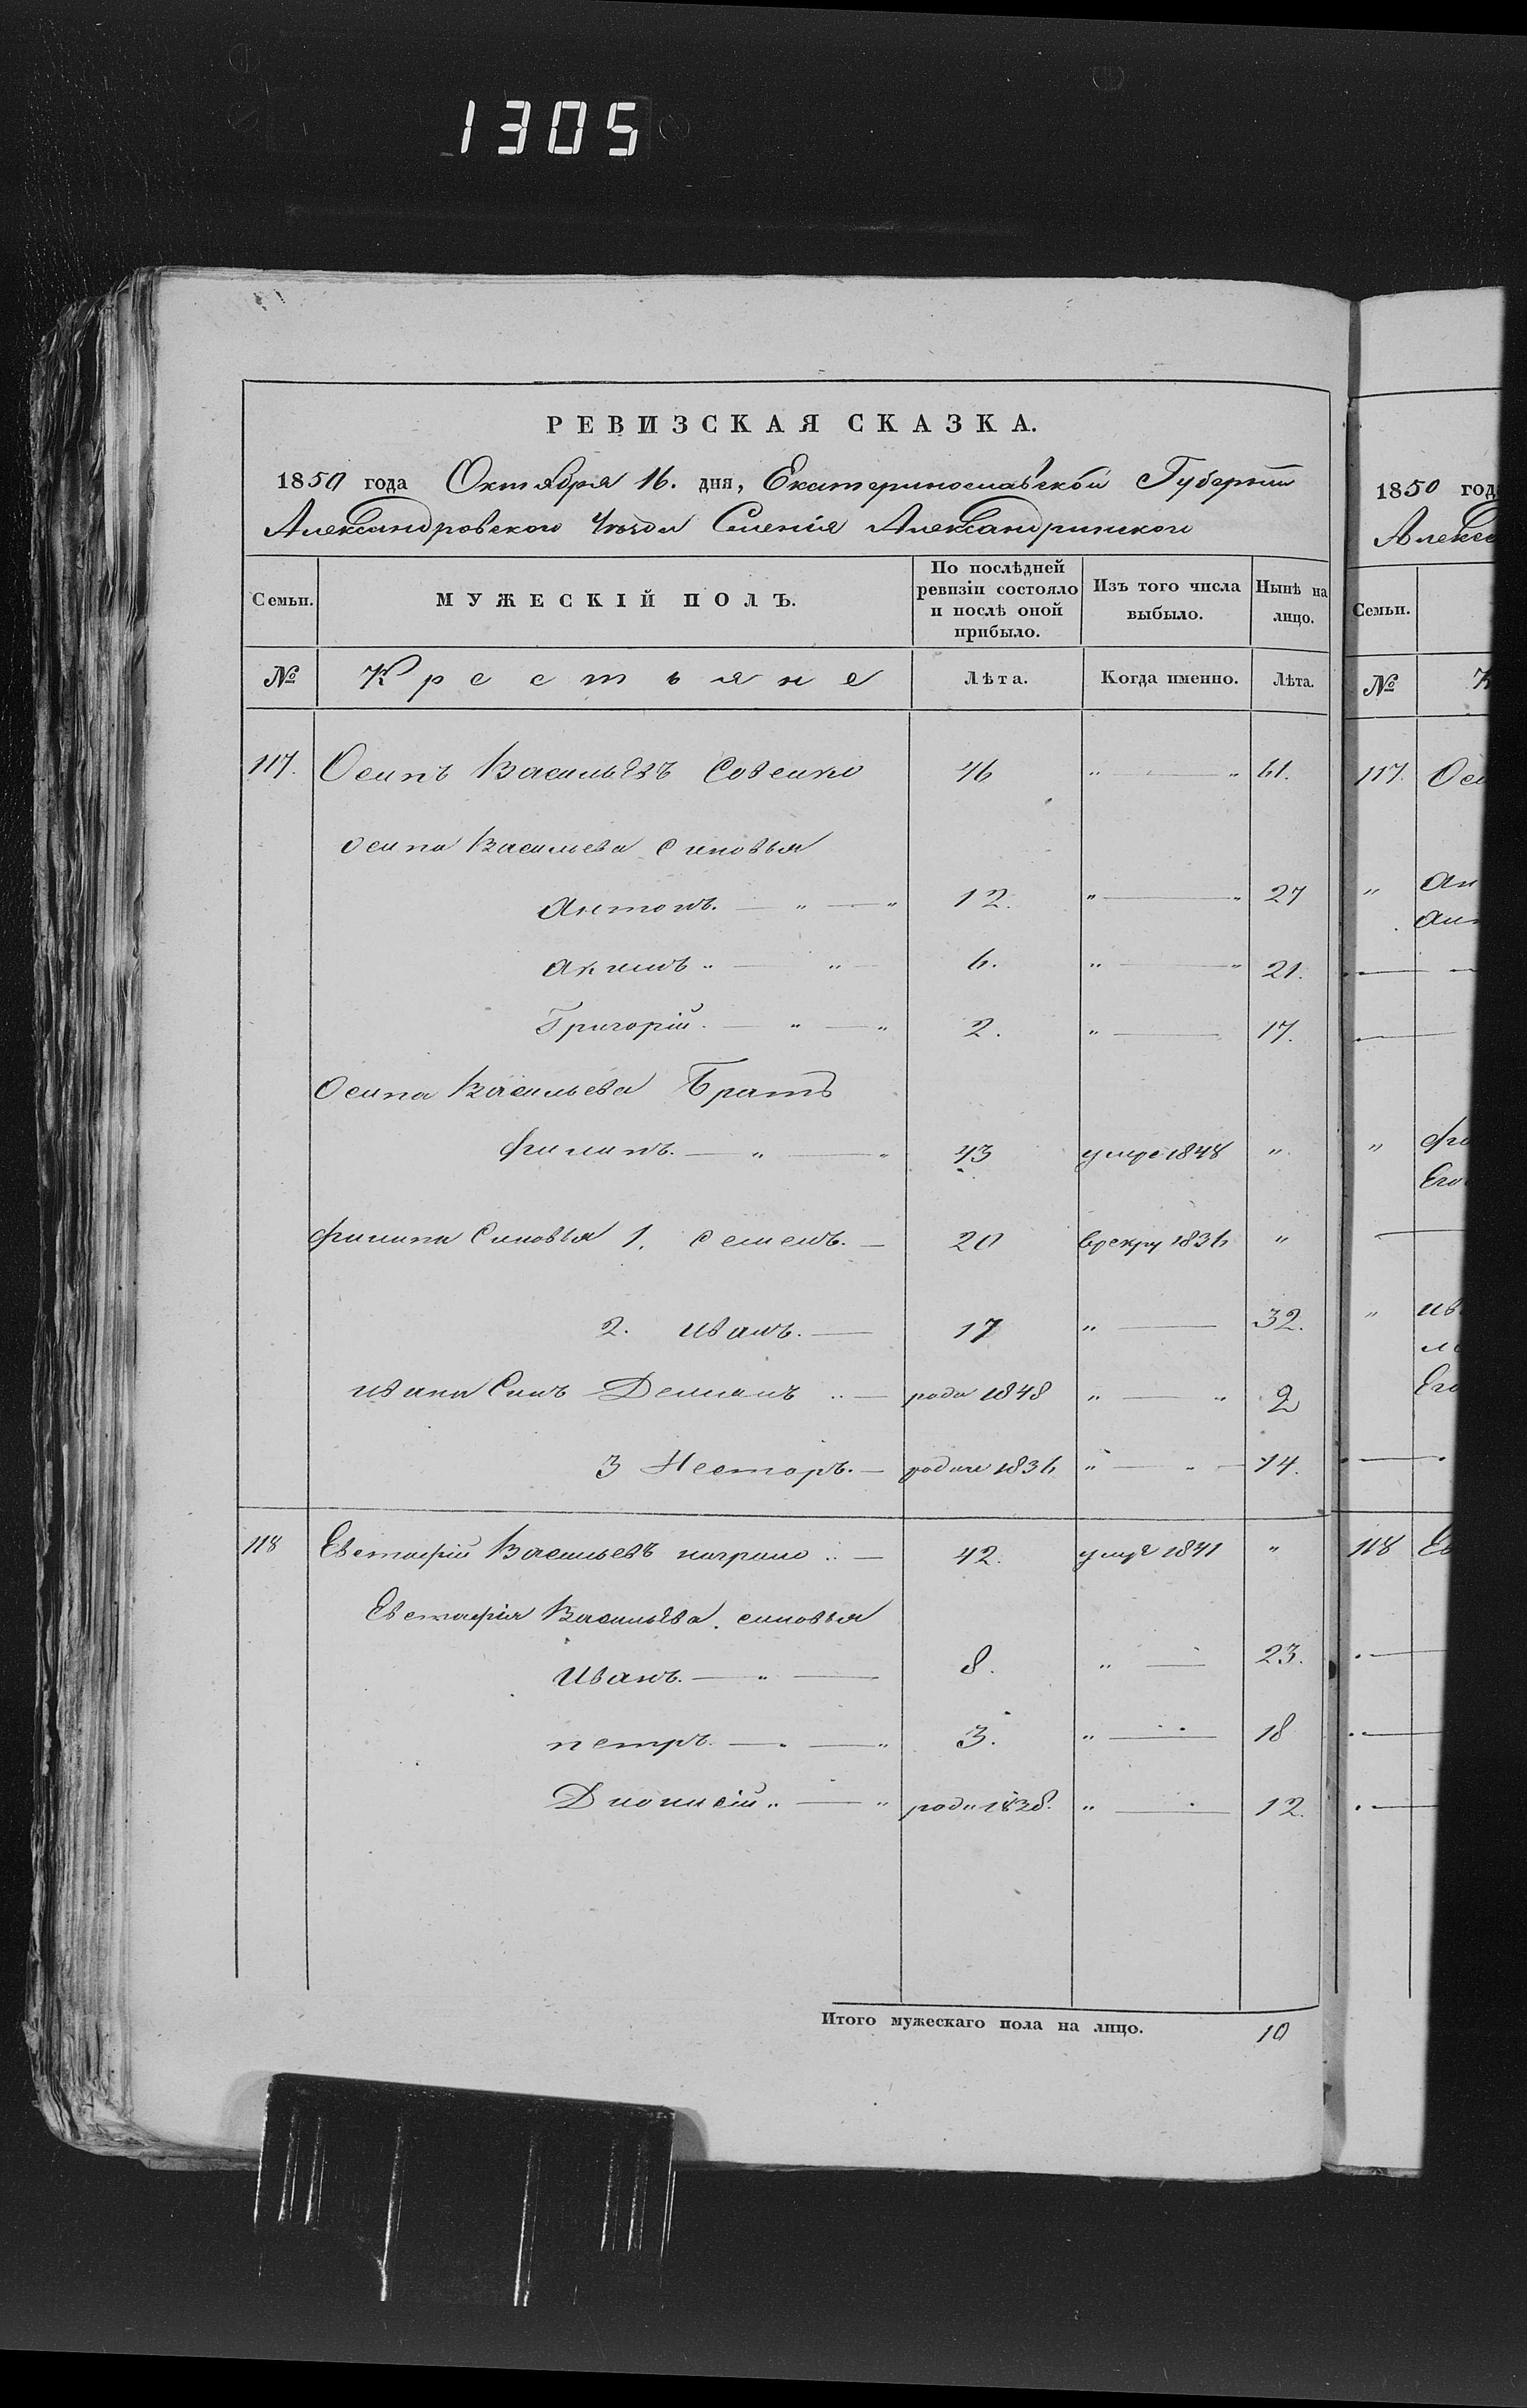 1305
РЕВИЗСКАЯ СКАЗКА.
1850 года Октября 16. дня, Екатеринославской Губернии
Александровского Уѣзда Селенія Александринского
Семьи. МУЖЕСКІЙ ПОЛЪ. По послѣдней ревизіи состояло и послѣ оной прибыло. Изъ того числа выбыло. Нынѣ на лицо.
№ Крестьяне Лѣта. Когда именно. Лѣта.
117. Осипъ Васильевъ 46 " — " 61.
Осипа Васильева синовья
Антонъ. — " — " 12. " — " 27
Акимъ " — " — 6. " — " 21.
Григорій. — " — " 2. " — 17.
Осипа Васильева Братъ
Филипъ. — " — " 43 умре 1848 "
Филипа Синовья 1. Семенъ. — 20 врекру 1836 "
2. Иванъ. — 17 " — 32.
Ивана Синъ Демианъ .. — роди 1848 " — " 2
3 Несторъ. — родил 1836 " — " — 14.
118 Евстафій Васильевъ .. — 42. умре 1841 "
Евстафія Васильева. синовья
Иванъ. — " — 8. " — 23.
петръ. — " — " 3. " — 18
Дионисій " — " роди 1838. " — 12.
Итого мужескаго пола на лицо. 10
1850 год
Алекс
Семьи.
№ К
117. Оси
" Ан
" Фи
Его
" Ив
Его
118 Ев